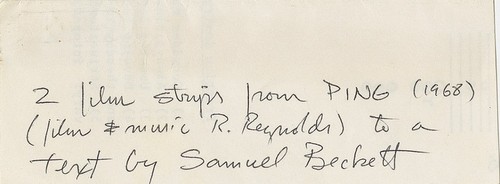 2 film strips from PING (1968)
(film & music R. Reynolds) to a
text by Samuel Beckett